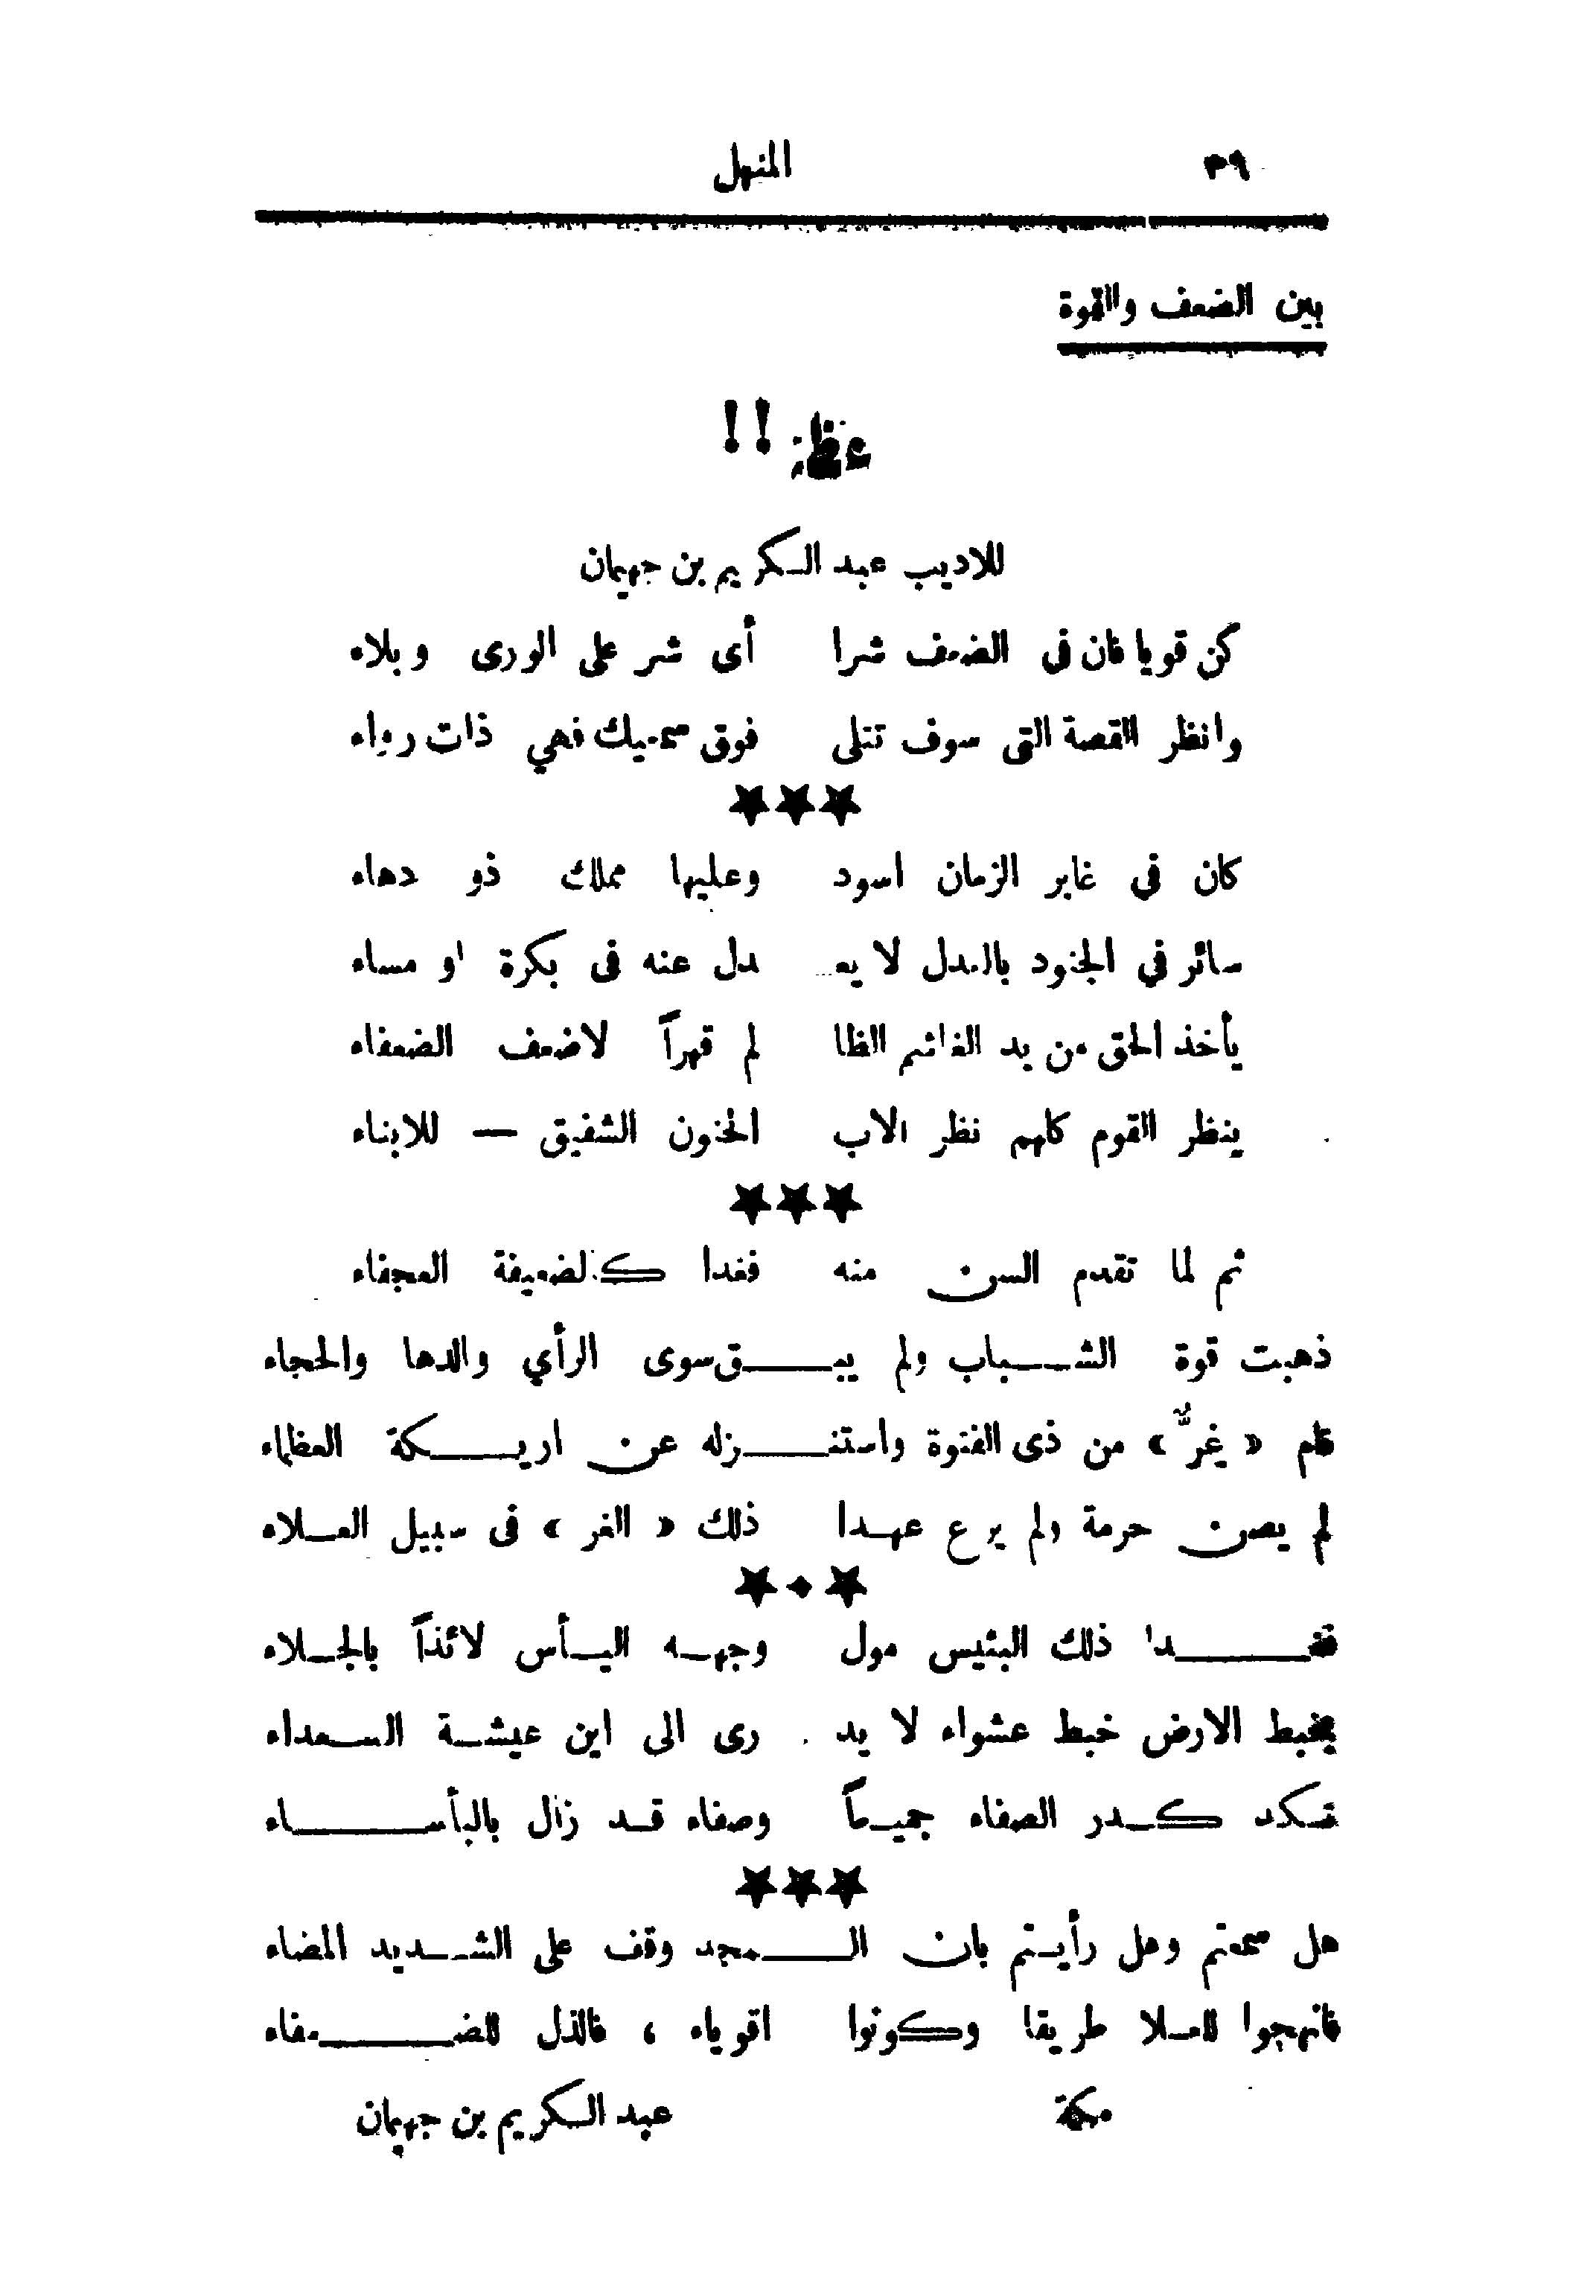 ٣٩ المنهل
بين الضعف والقوة
عظة !!
للاديب عبد الكريم بن جهيمان
كن قويا فان فى الضعف شرا أى شر على الورى وبلاء
وانظر القصة التى سوف تتلى فوق سمعيك فهي ذات رواء
★★★
كان في غابر الزمان اسود وعليها مملك ذو دهاء
سائر في الجنود بالعدل لا يعـ ـدل عنه فى بكرة او مساء
يأخذ الحق من يد الغاشم الظا لم قهراً لاضعف الضعفاء
ينظر القوم كلهم نظر الاب الحنون الشفيق — للابناء
★★★
ثم لما تقدم السن منه فغدا كالضعيفة العجفاء
ذهبت قوة الشباب ولم يبـق سوى الرأي والدها والحجاء
قام « غرٌّ » من ذى الفتوة واستنـزله عن اريكة العظماء
لم يصن حرمة ولم يرع عهدا ذلك « الغر » فى سبيل العلاء
★•★
فغدا ذلك البئيس مول وجهه اليأس لائذاً بالجلاء
يخبط الارض خبط عشواء لا يد رى الى اين عيشة السعداء
نكد كدر الصفاء جميعاً وصفاء قد زال بالبأساء
★★★
هل سمعتم وهل رأيتم بان الـمجد وقف على الشديد المضاء
فانهجوا للعلا طريقا وكونوا اقوياء ، فالذل للضعفاء
مكة عبد الكريم بن جهيمان